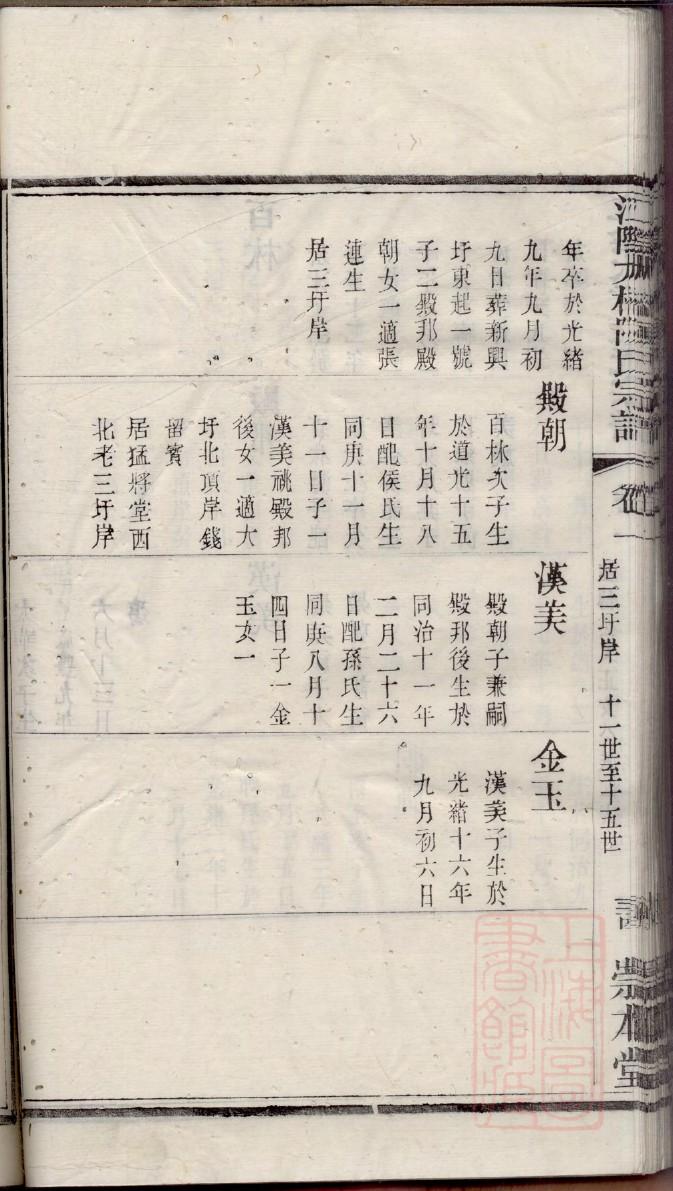 年卒於光緒
九年九月初
九日葬新興
圩東起一號
子二殿邦殿
朝女一適張
蓮生
居三圩岸
殿朝
百林次子生
於道光十五
年十月十八
日配侯氏生
同庚十一月
十一日子一
漢美祧殿邦
後女一適大
圩北頂岸錢
留賓
居猛將堂西
北老三圩岸
漢美
殿朝子兼嗣
殿邦後生於
同治十一年
二月二十六
日配孫氏生
同庚八月十
四日子一金
玉女一
金玉
漢美子生於
光緒十六年
九月初六日
居三圩岸 十一世至十五世
崇本堂
上海圖書館藏